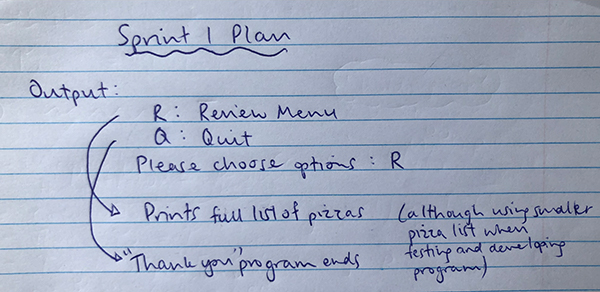 Sprint 1 Plan
Output:
R: Review Menu
Q: Quit
Please choose options: R
Prints full list of pizzas (although using smaller
pizza list when
testing and developing
program)
"Thank you", program ends